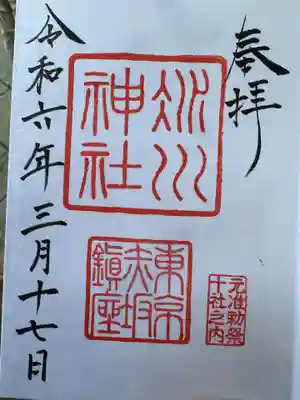 奉拝
氷川
神社
元准勅祭
十社之内
東京
赤坂
鎮座
令和六年三月十七日